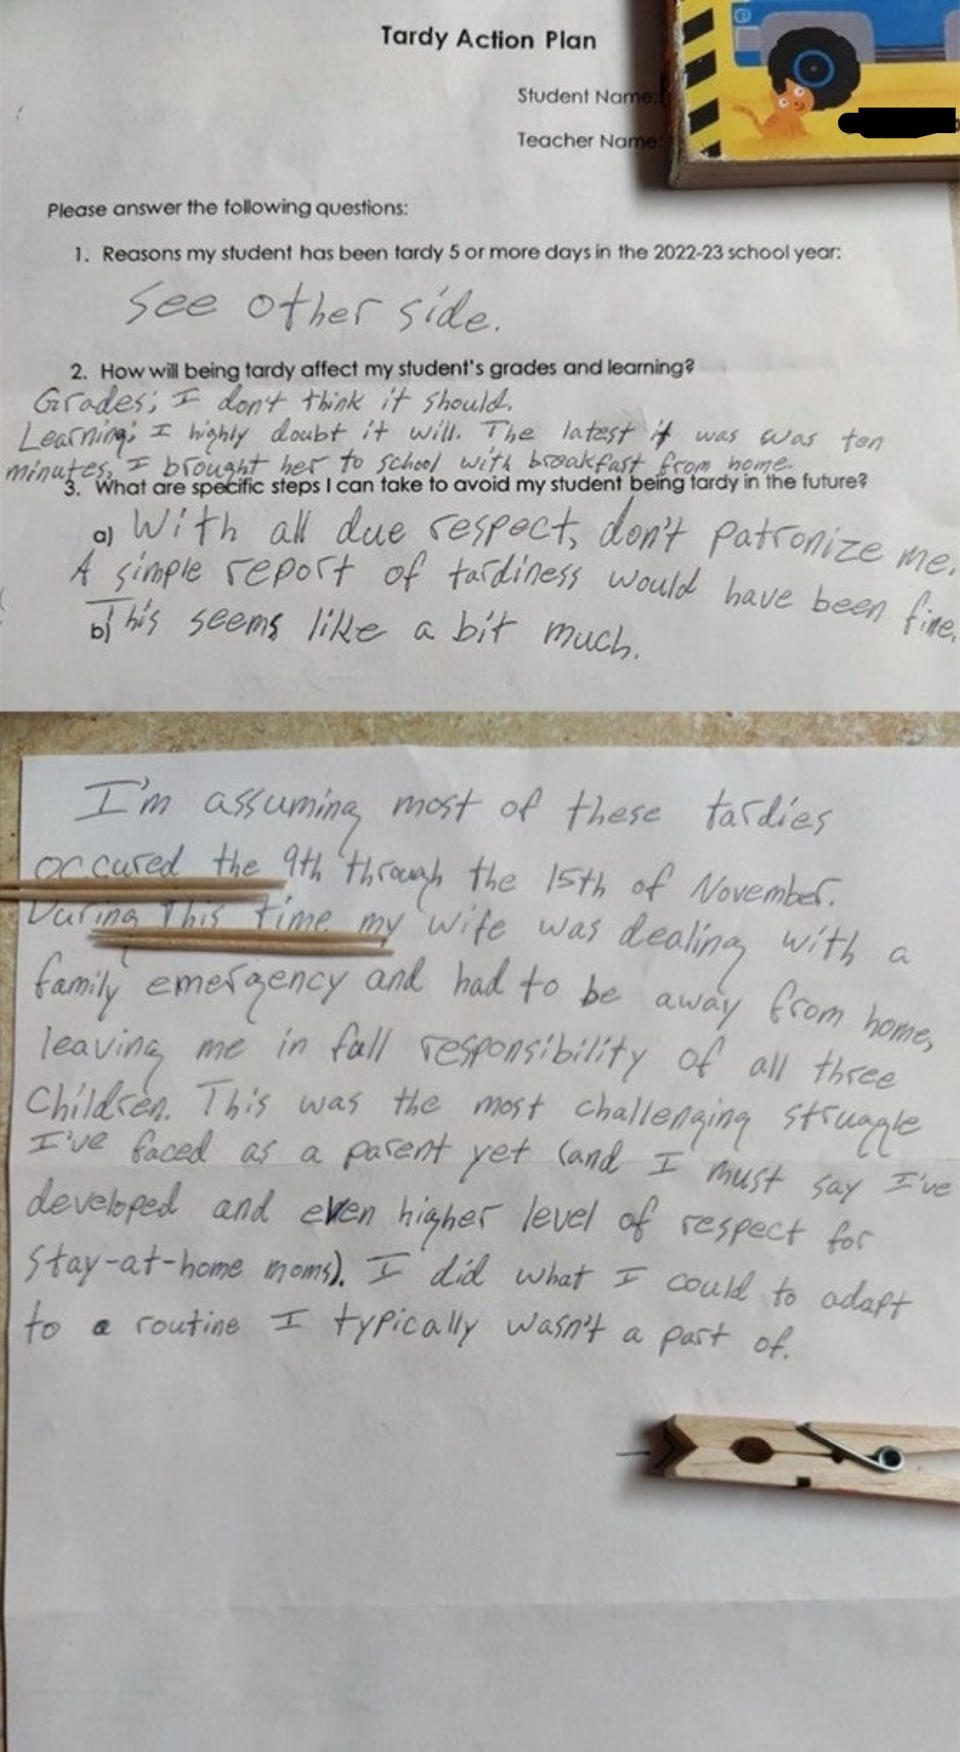 Tardy Action Plan
Student Name:
Teacher Name:
Please answer the following questions:
1. Reasons my student has been tardy 5 or more days in the 2022-23 school year:
See other side.
2. How will being tardy affect my student's grades and learning?
Grades; I don't think it should.
Learning; I highly doubt it will. The latest it was was ten
minutes, I brought her to school with breakfast from home.
3. What are specific steps I can take to avoid my student being tardy in the future?
a) With all due respect, don't patronize me.
A simple report of tardiness would have been fine.
b) This seems like a bit much.
I'm assuming most of these tardies
occured the 9th through the 15th of November.
During this time my wife was dealing with a
family emergency and had to be away from home,
leaving me in full responsibility of all three
children. This was the most challenging struggle
I've faced as a parent yet (and I must say I've
developed and even higher level of respect for
stay-at-home moms). I did what I could to adapt
to a routine I typically wasn't a part of.